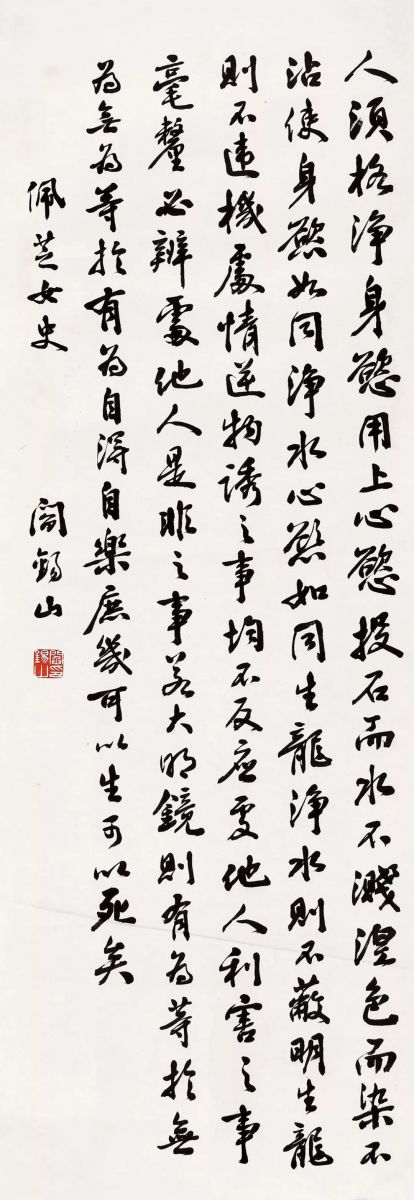 人須格淨身慾用上心慾投石而水不濺涅色而染不
沾使身慾如同淨水心慾如同生龍淨水則不蔽明生龍
則不違機處情逆物誘之事均不反應受他人利害之事
毫釐必辨處他人是非之事若大明鏡則有為等於無
為無為等於有為自得自樂庶幾可以生可以死矣
佩芝女史
閻錫山
閻錫山印